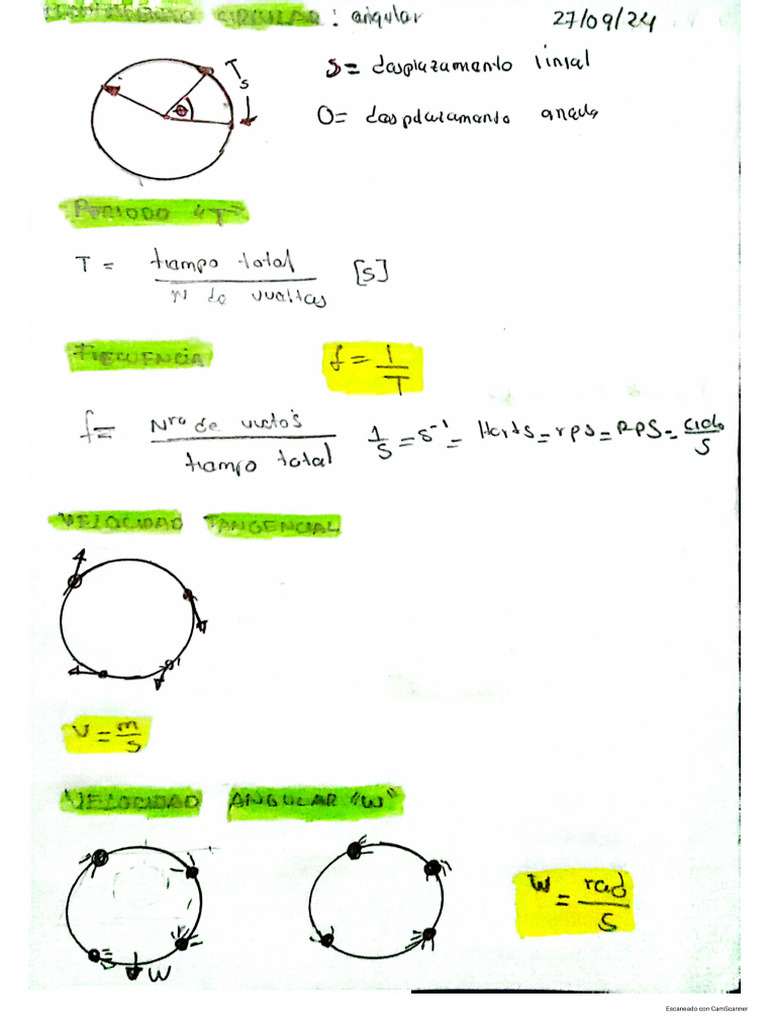 CIRCULAR : angular 27/09/24
T
S
θ
S = desplazamiento linial
O = desplazamento angulo
PERIODO "T"
T = tiempo total / N de vueltas [s]
FRECUENCIA f = 1/T
f = Nro de vueltas / tiempo total 1/s = s⁻¹ = Herts = rps = RPS = ciclo/s
VELOCIDAD TANGENCIAL
V = m/s
VELOCIDAD ANGULAR "W"
W
W = rad/s
Escaneado con CamScanner